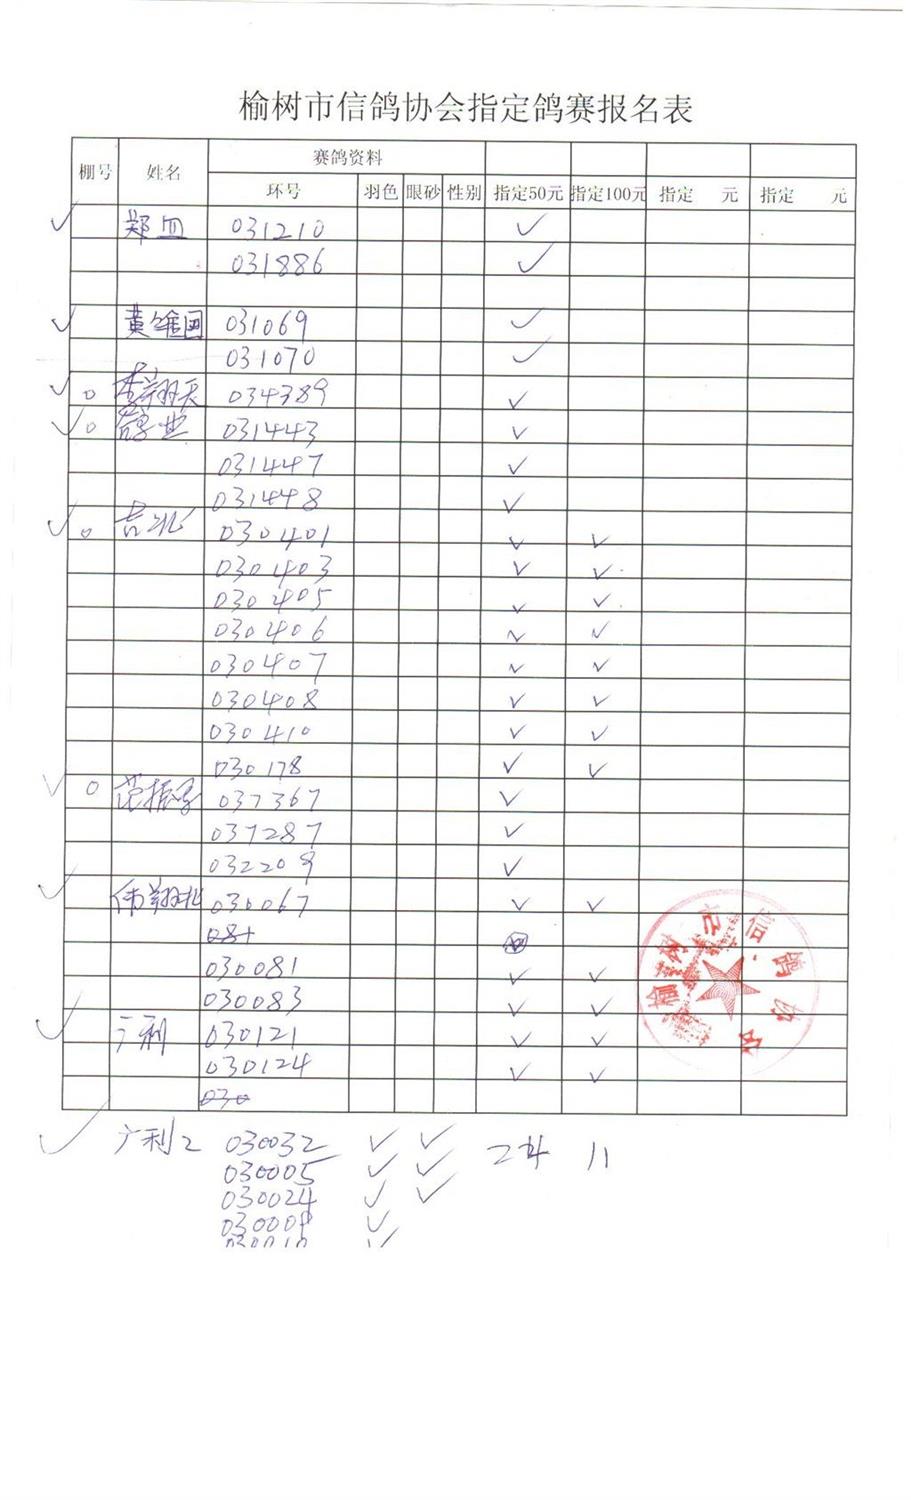 榆树市信鸽协会指定鸽赛报名表
棚号 姓名 赛鸽资料
环号 羽色 眼砂 性别 指定50元 指定100元 指定 元 指定 元
✓ 郑 031210 ✓
031886 ✓
✓ 黄雄国 031069 ✓
031070 ✓
✓ 0 李翔天 034389 ✓
✓ 0 031443 ✓
031447 ✓
031448 ✓
✓ 0 吉北 030401 ✓ ✓
030403 ✓ ✓
030405 ✓ ✓
030406 ✓ ✓
030407 ✓ ✓
030408 ✓ ✓
030410 ✓ ✓
030178 ✓ ✓
✓ 0 范振 037367 ✓
037287 ✓
032209 ✓
✓ 伟翔 030067 ✓ ✓
030081 ✓ ✓
030083 ✓ ✓
✓ 广利 030121 ✓ ✓
030124 ✓ ✓
030
✓ 广利2 030032 ✓ ✓
030005 ✓ ✓
030024 ✓ ✓
✓
✓
榆树市信鸽协会